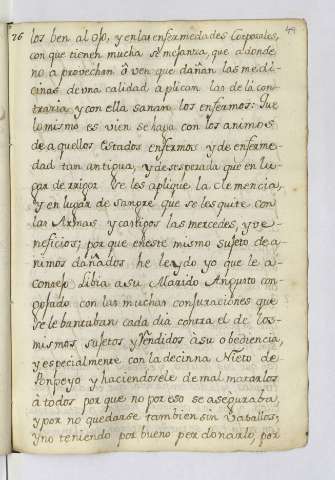 26
49
los ben al Oso, y en las enfermedades Corporales,
con que tienen mucha semejanza, que a donde
no aprovechan ô ven que dañan las medi-
cinas de una calidad aplican las de la con-
traria y con ella sanan los enfermos: Que
lo mismo es vien se haga con los animos
de aquellos estados enfermos y de enferme-
dad tan antigua, y desesperada que en lu-
gar de rigor se les aplique la clemencia,
y en lugar de sangre que se les quite con
las Armas y castigos las mercedes, y ve-
neficios; por que eneste mismo sujeto de a-
nimos dañados he leydo yo que le a-
consejo Libia asu Marido Augusto con-
gojado con las muchas conjuraciones que
se le bantaban cada dia contra el de los
mismos sujetos y Rendidos asu obediencia,
y especialmente con la de cinna Nieto de
Ponpeyo y haciendosele de mal matarlos
â todos por que no por eso se aseguraba,
y por no quedarse tambien sin Vasallos;
y no teniendo por bueno perdonarlo, por